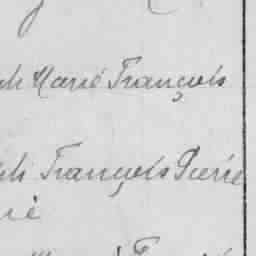 ph Marie François
ph François Pierre
rie